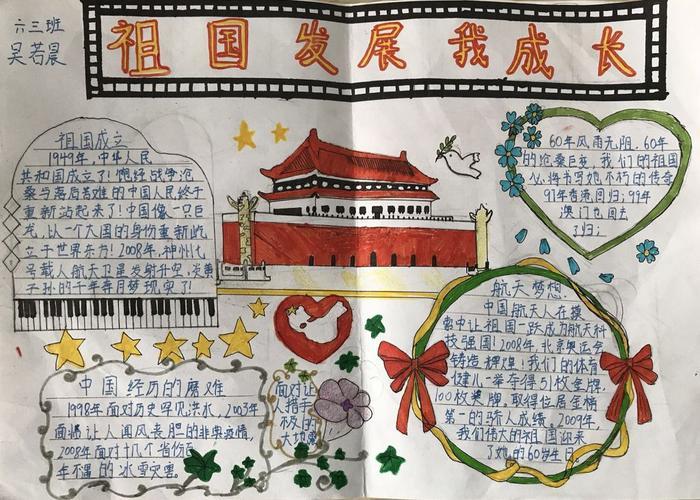 六三班
吴若晨
祖国发展我成长
祖国成立
1949年,中华人民
共和国成立了!饱经战争沧
桑与落后苦难的中国人民终于
重新站起来了!中国像一只巨
龙,以一个大国的身份重新屹
立于世界东方!2008年,神州七
号载人航天卫星发射升空,炎黄
子孙的千年奔月梦现实了!
60年风雨无阻,60年
的沧桑巨变,我们的祖国
必将书写她不朽的传奇
97年香港回归;99年
澳门也回去
了归;
航天梦想
中国航天人在摸
索中让祖国一跃成为航天科
技强国!2008年,北京奥运会
铸造辉煌!我们的体育
健儿一举夺得51枚金牌,
100枚奖牌,取得位居金榜
第一的骄人成绩。2009年,
我们伟大的祖国迎来
了她的60岁生日
中国经历的磨难
1998年面对历史罕见洪水,2003年
面临让人闻风丧胆的非典疫情,
2008年面对十几个省份百
年不遇的冰雪灾害
面对让
人措手
不及的
大地震